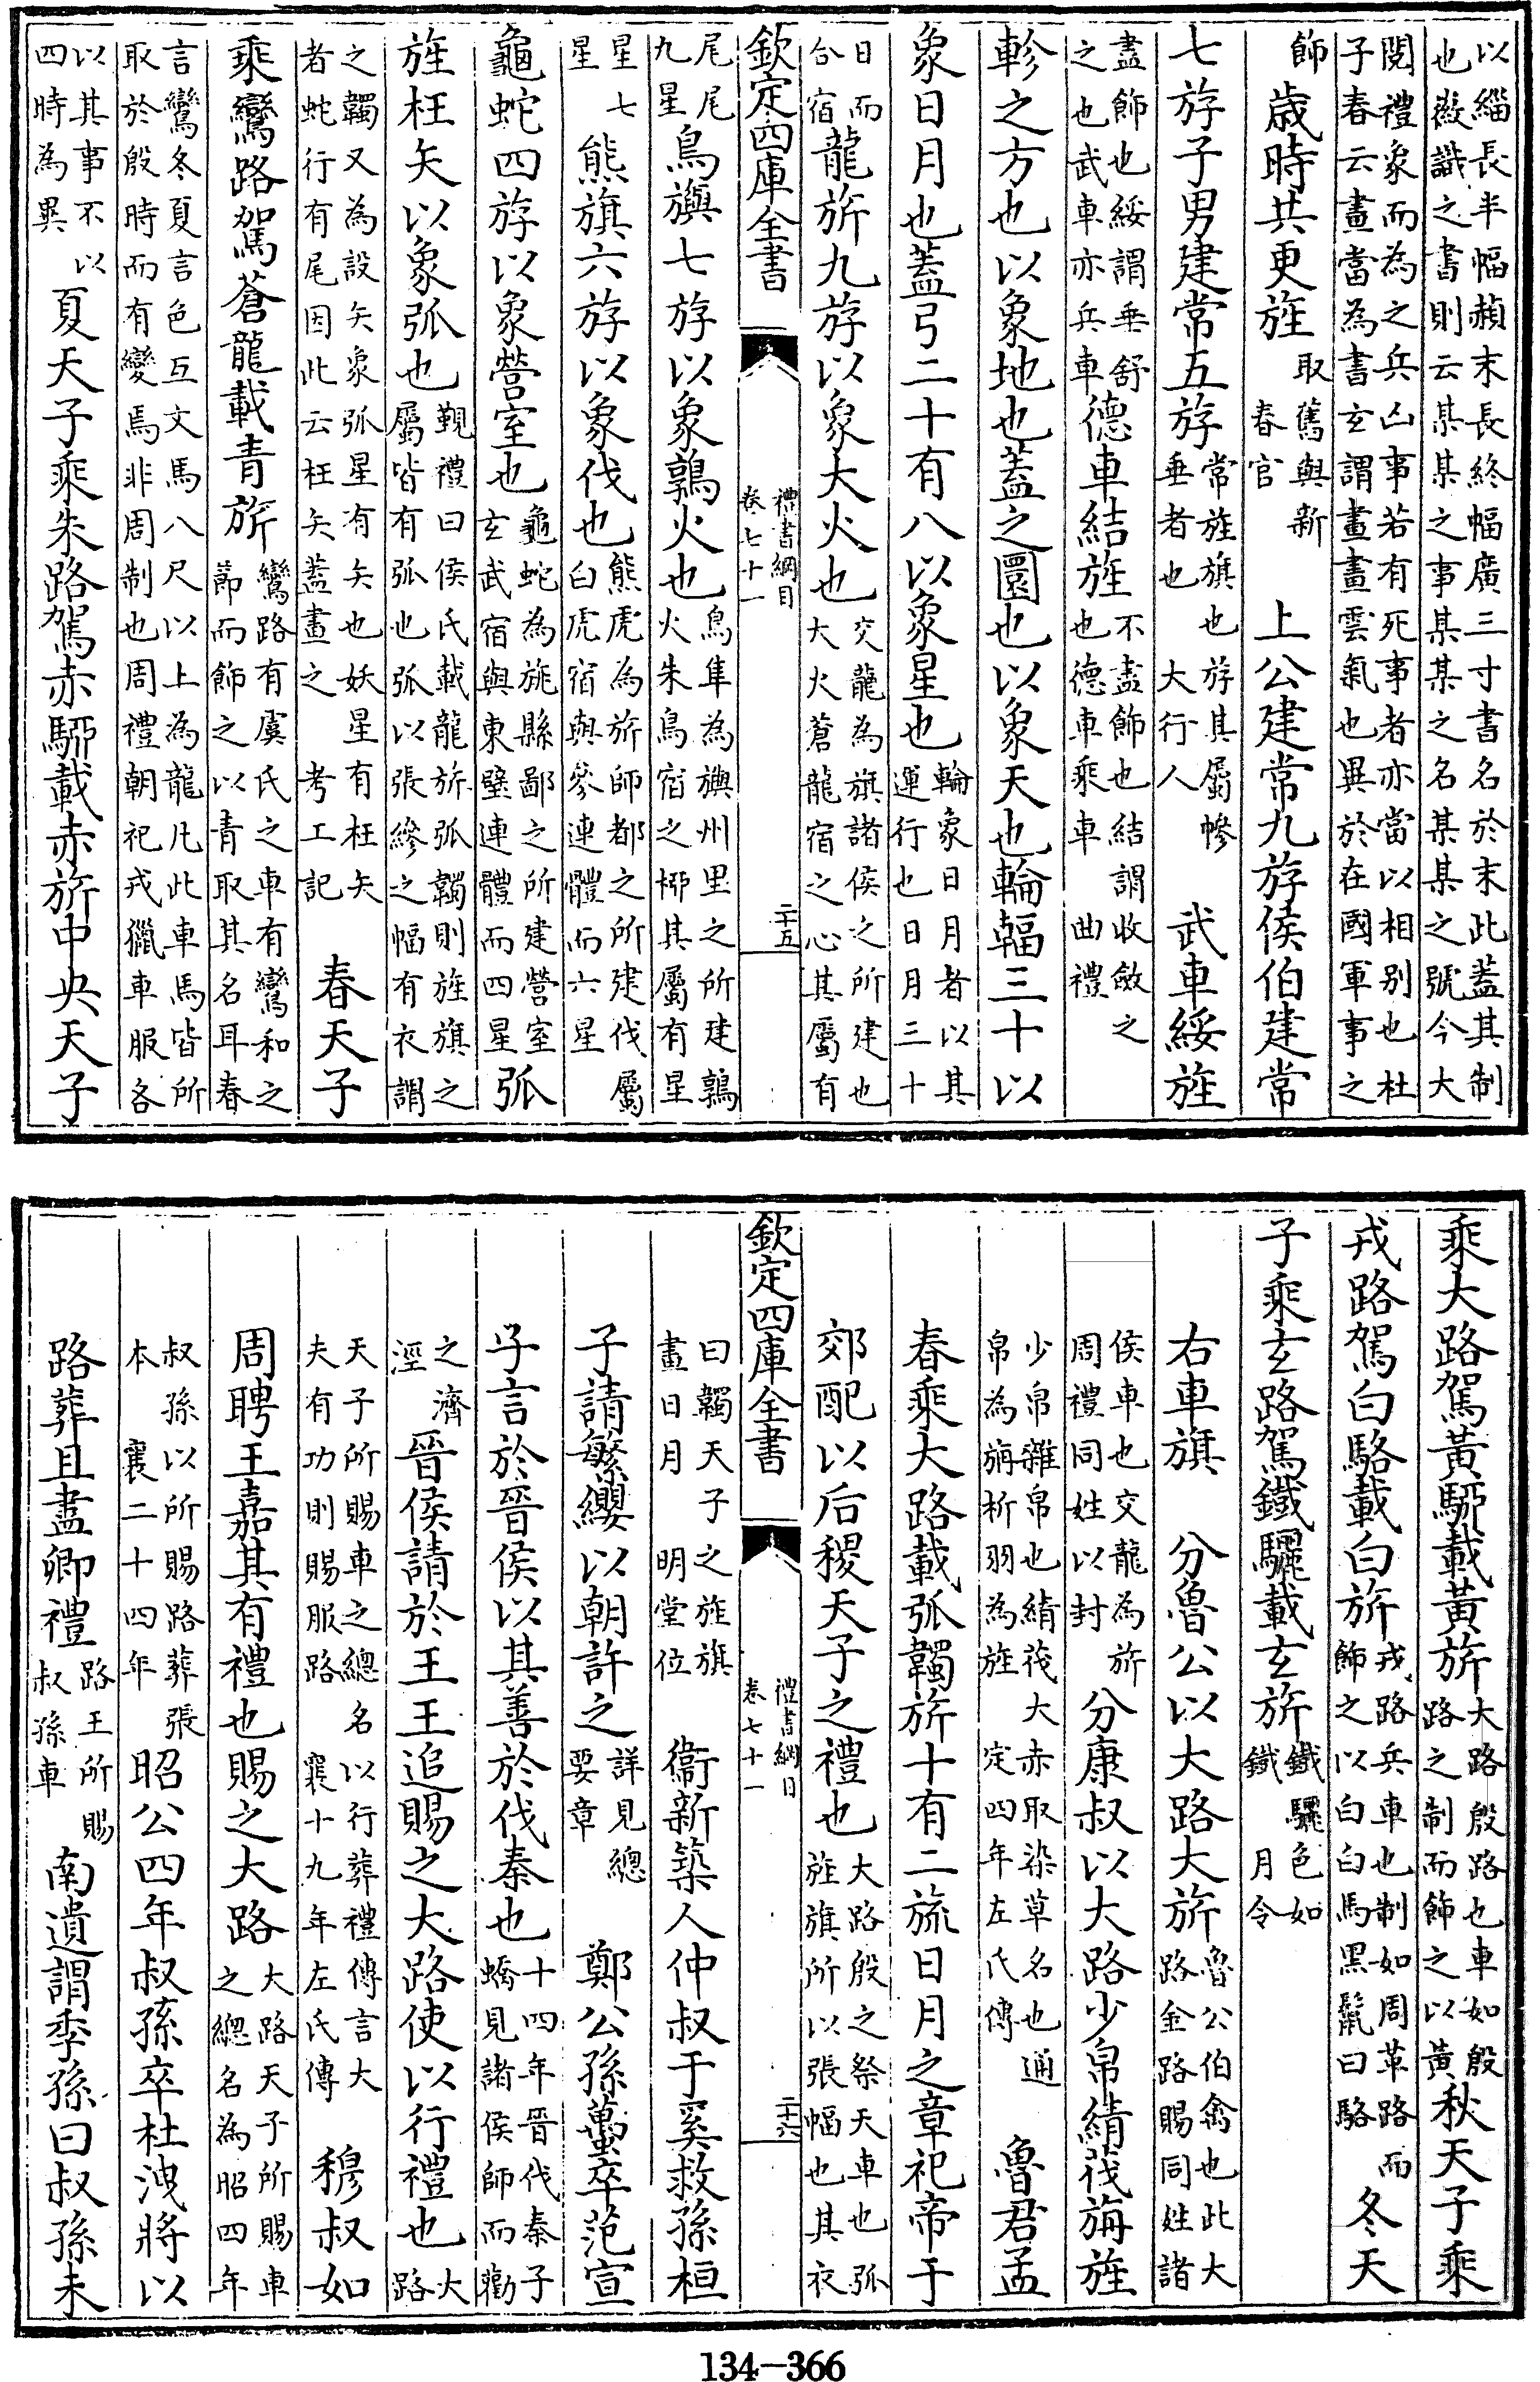 以緇長半幅赬末長終幅廣三寸書名於末此蓋其制
也徽識之書則云某某之事某某之名某某之號今大
閱禮象而為之兵凶事若有死事者亦當以相别也杜
子春云畫當為書玄謂畫畫雲氣也異於在國軍事之
飾 歳時共更旌 取舊與新 春官 上公建常九斿侯伯建常
七斿子男建常五斿 常旌旗也斿其屬幓垂者也 大行人 武車綏旌
盡飾也綏謂垂舒之也武車亦兵車 德車結旌 不盡飾也結謂收斂之也德車乘車 曲禮
軫之方也以象地也蓋之圜也以象天也輪輻三十以
象日月也蓋弓二十有八以象星也 輪象日月者以其運行也日月三十
日而合宿 龍旂九斿以象大火也 交龍為旂諸侯之所建也大火蒼龍宿之心其屬有
欽定四庫全書 禮書綱目 卷七十一 二十五
尾尾九星 鳥旟七斿以象鶉火也 鳥隼為旟州里之所建鶉火朱鳥宿之栁其屬有星
星七星 熊旗六斿以象伐也 熊虎為旗師都之所建伐屬白虎宿與參連體而六星
龜蛇四斿以象營室也 龜蛇為旐縣鄙之所建營室玄武宿與東壁連體而四星 弧
旌枉矢以象弧也 覲禮曰侯氏載龍旂弧韣則旌旗之屬皆有弧也弧以張縿之幅有衣謂
之韣又為設矢象弧星有矢也妖星有枉矢者蛇行有尾因此云枉矢蓋畫之 考工記 春天子
乘鸞路駕蒼龍載青旂 鸞路有虞氏之車有鸞和之節而飾之以青取其名耳春
言鸞冬夏言色互文馬八尺以上為龍凡此車馬皆所取於殷時而有變焉非周制也周禮朝祀戎獵車服各
以其事不以四時為異 夏天子乘朱路駕赤駵載赤旂中央天子
乘大路駕黃駵載黃旂 大路殷路也車如殷路之制而飾之以黃 秋天子乘
戎路駕白駱載白旂 戎路兵車也制如周革路而飾之以白白馬黑鬛曰駱 冬天
子乘玄路駕鐵驪載玄旂 鐵驪色如鐵 月令
右車旗 分魯公以大路大旂 魯公伯禽也此大路金路賜同姓諸
侯車也交龍為旂周禮同姓以封 分康叔以大路少帛綪茷旃旌
少帛雜帛也綪茷大赤取染草名也通帛為旃析羽為旌 定四年左氏傳 魯君孟
春乘大路載弧韣旂十有二旒日月之章祀帝于
郊配以后稷天子之禮也 大路殷之祭天車也弧旌旗所以張幅也其衣
欽定四庫全書 禮書綱目 卷七十一 二十六
曰韣天子之旌旗畫日月 明堂位 衞新築人仲叔于奚救孫桓
子請繁纓以朝許之 詳見總要章 鄭公孫蠆卒范宣
子言於晉侯以其善於伐秦也 十四年晉伐秦子蟜見諸侯師而勸
之濟涇 晉侯請於王王追賜之大路使以行禮也 大路
天子所賜車之總名以行葬禮傳言大夫有功則賜服路 襄十九年左氏傳 穆叔如
周聘王嘉其有禮也賜之大路 大路天子所賜車之總名為昭四年
叔孫以所賜路葬張本 襄二十四年 昭公四年叔孫卒杜洩將以
路葬且盡卿禮 路王所賜叔孫車 南遺謂季孫曰叔孫未
134-366